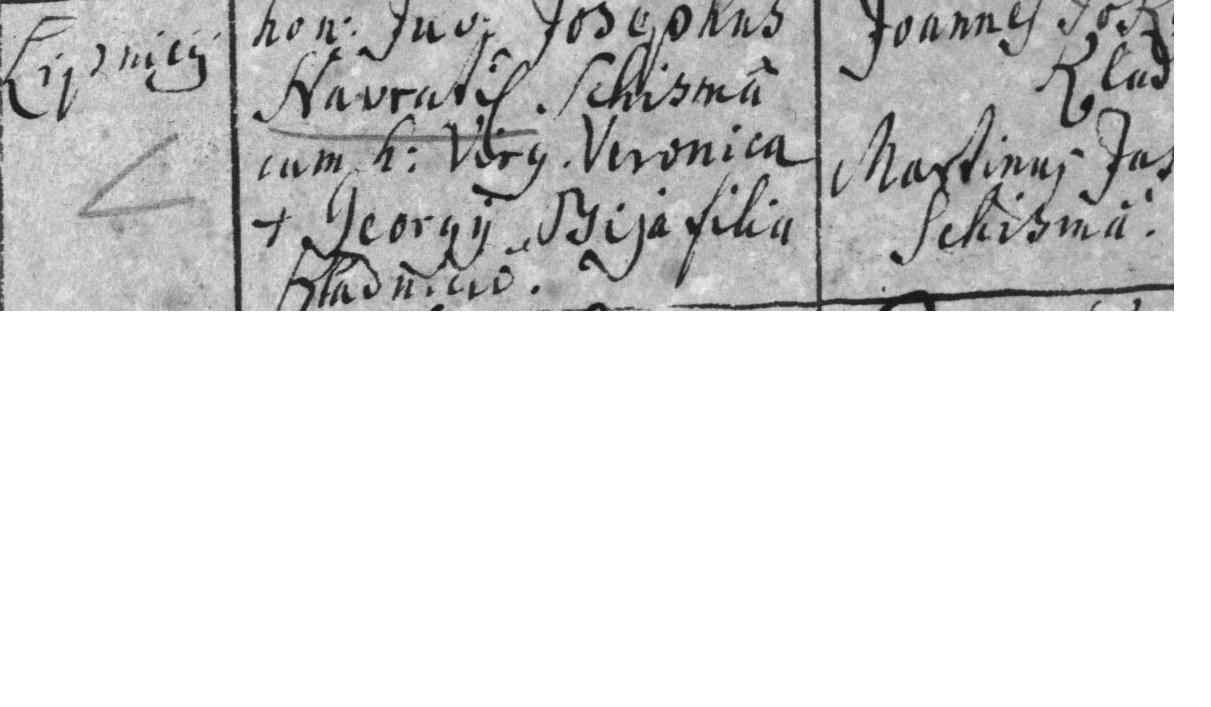 Lipnicÿ
hon: Juv: Josephus
Navratil Schismâ
cum h: Virg. Veronica
+ Georgÿ Bija filia
Kladnicio.
Joannes
Klad
Martinus Jas
Schismâ.